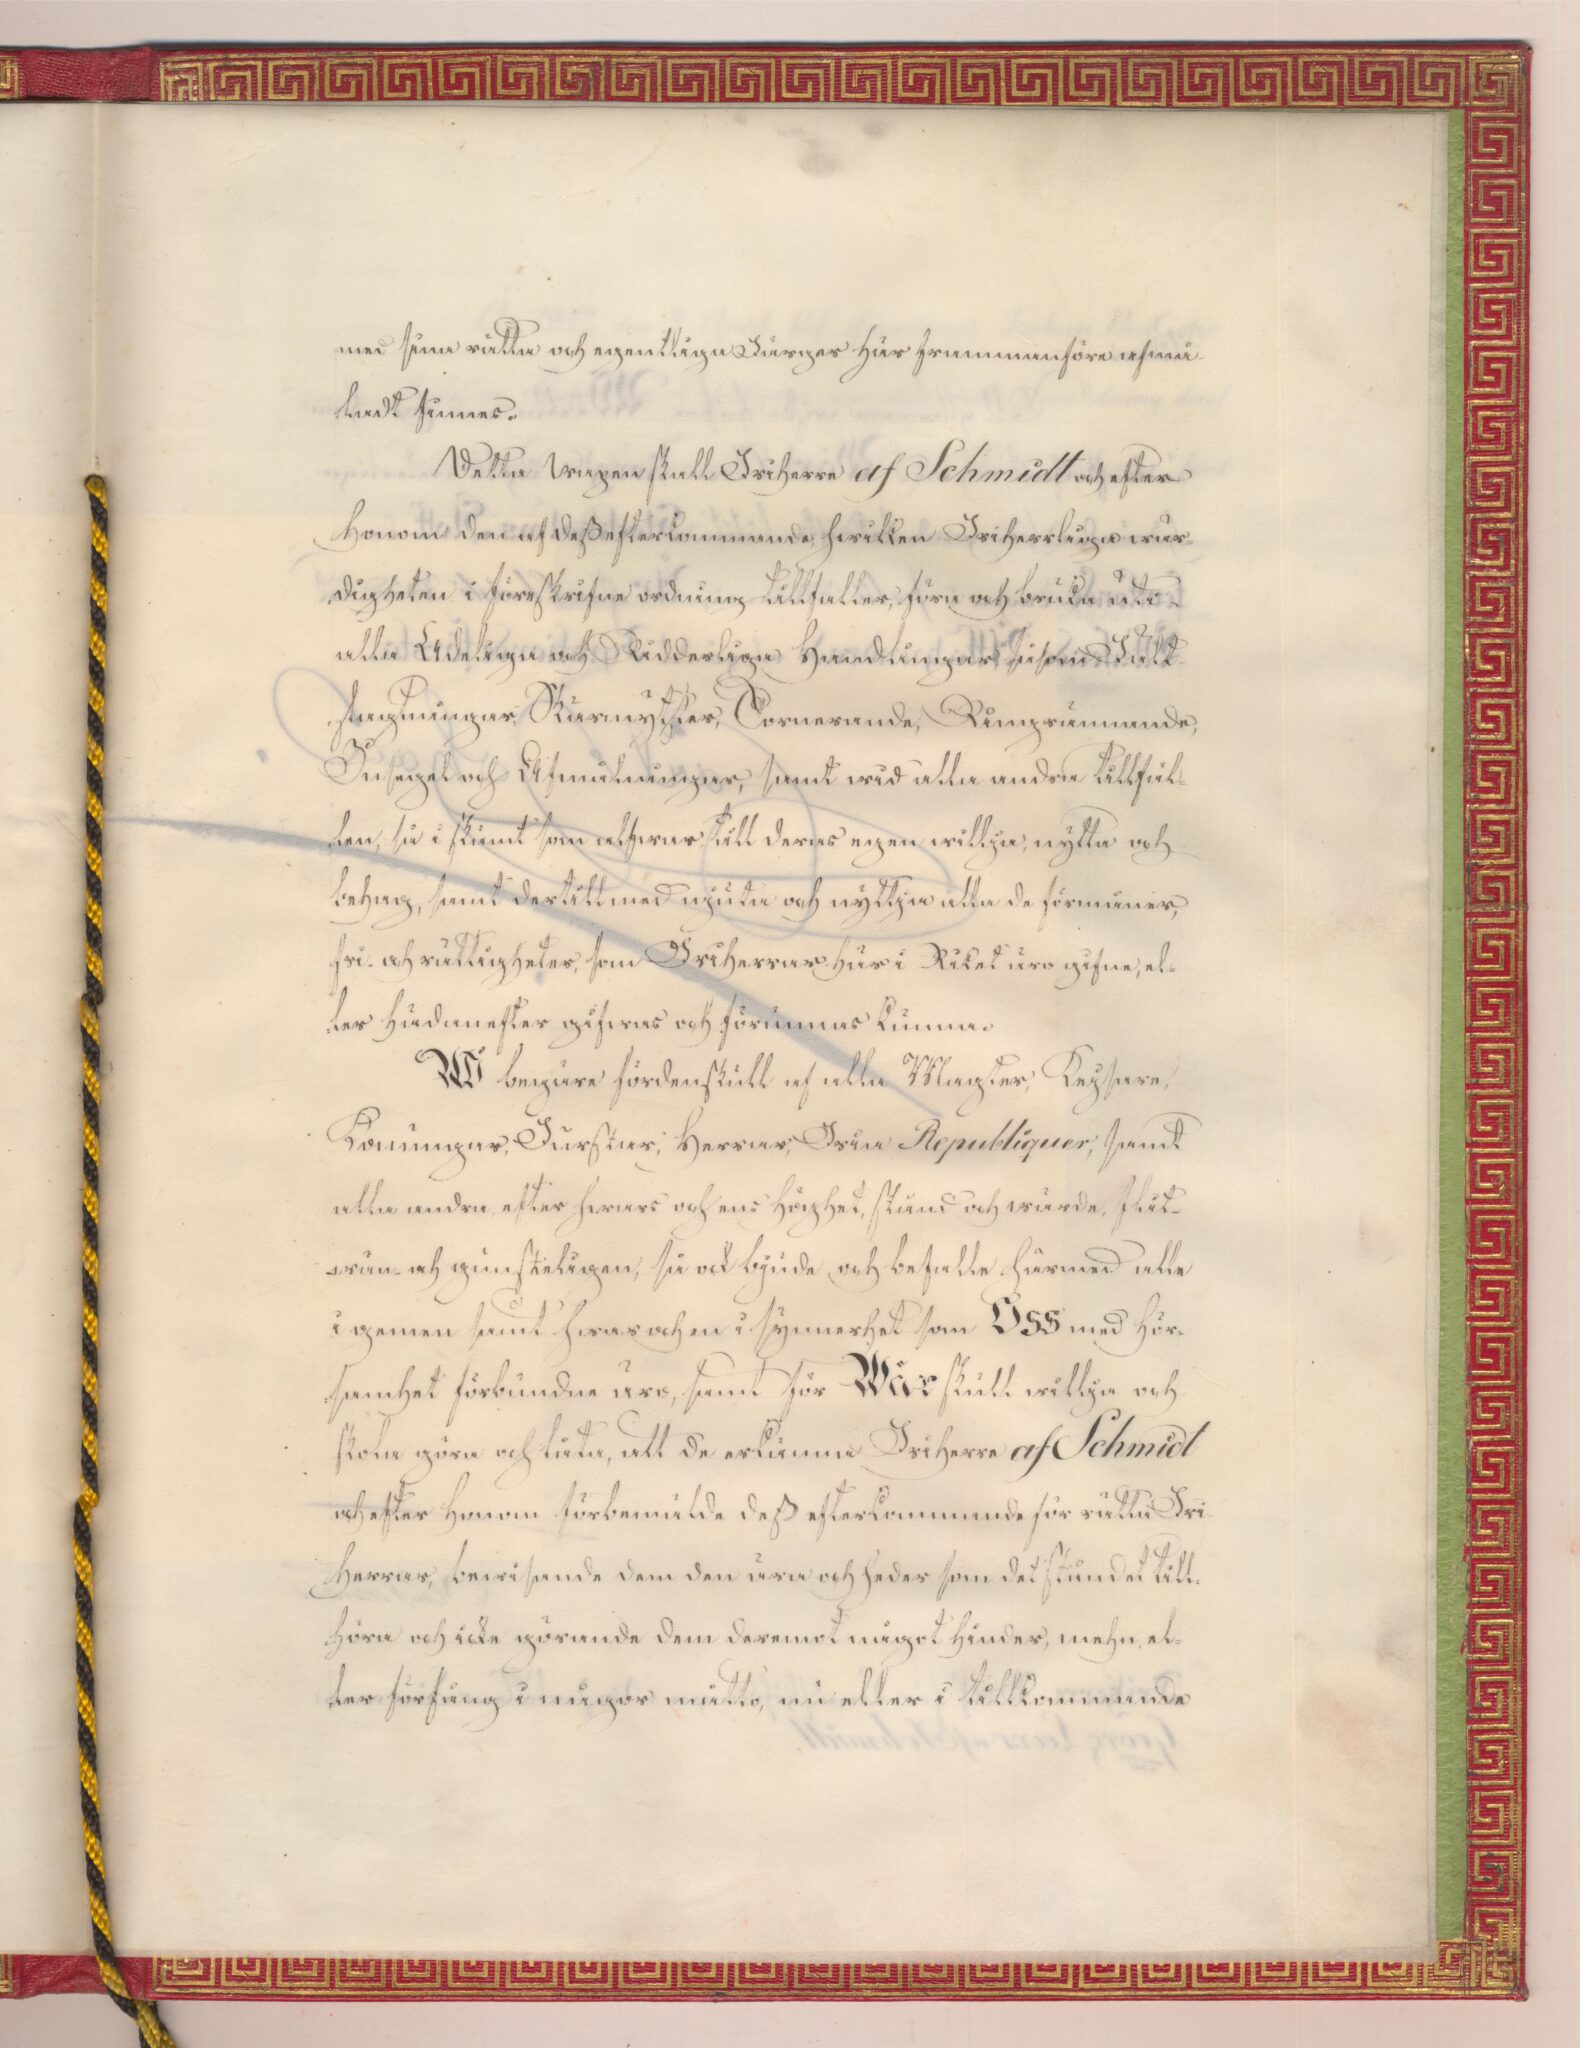 med sina rätta och egentliga Färgor här frammanföre afmå-
ladt finnes.
Detta Wapen skall Friherre af Schmidt och efter
Honom den af deß efterkommande, hwilken Friherrliga wär-
digheten i föreskrifne ordning tillfaller, föra och bruka uti
alla Adeliga och Ridderliga Handlingar, såsom Fält-
slagtningar, Skärmytsler, Tornerande, Ringrännande,
Insegel och Afmålningar, samt wid alla andra tillfäl-
len, så i skämt som alfwar till deras egen willja, nytta och
behag, samt dertill med njuta och nyttja alla de förmåner,
fri- och rättigheter, som Friherrar här i Riket äro gifne, el-
ler hädanefter gifwas och förunnas kunna.
Wi begäre fördenskull af alla Magter, Keysare,
Konungar, Furstar, Herrar, Fria Republiquer, samt
alla andra, efter hwars och ens höghet, stånd och wärde, flit-
wän- och gunsteligen, så ock bjude och befalle härmed alle
i gemen samt hwar och en i synnerhet som Oss med hör-
samhet förbundne äro, samt för Wår skull willja och
skola göra och låta, att de erkänna Friherre af Schmidt
och efter Honom förbemälde deß efterkommande för rätta Fri-
Herrar, bewisande dem den ära och heder som det ståndet till-
höra och icke görande dem deremot något hinder, mehn, el-
ler förfång i någor måtto, nu eller i tillkommande